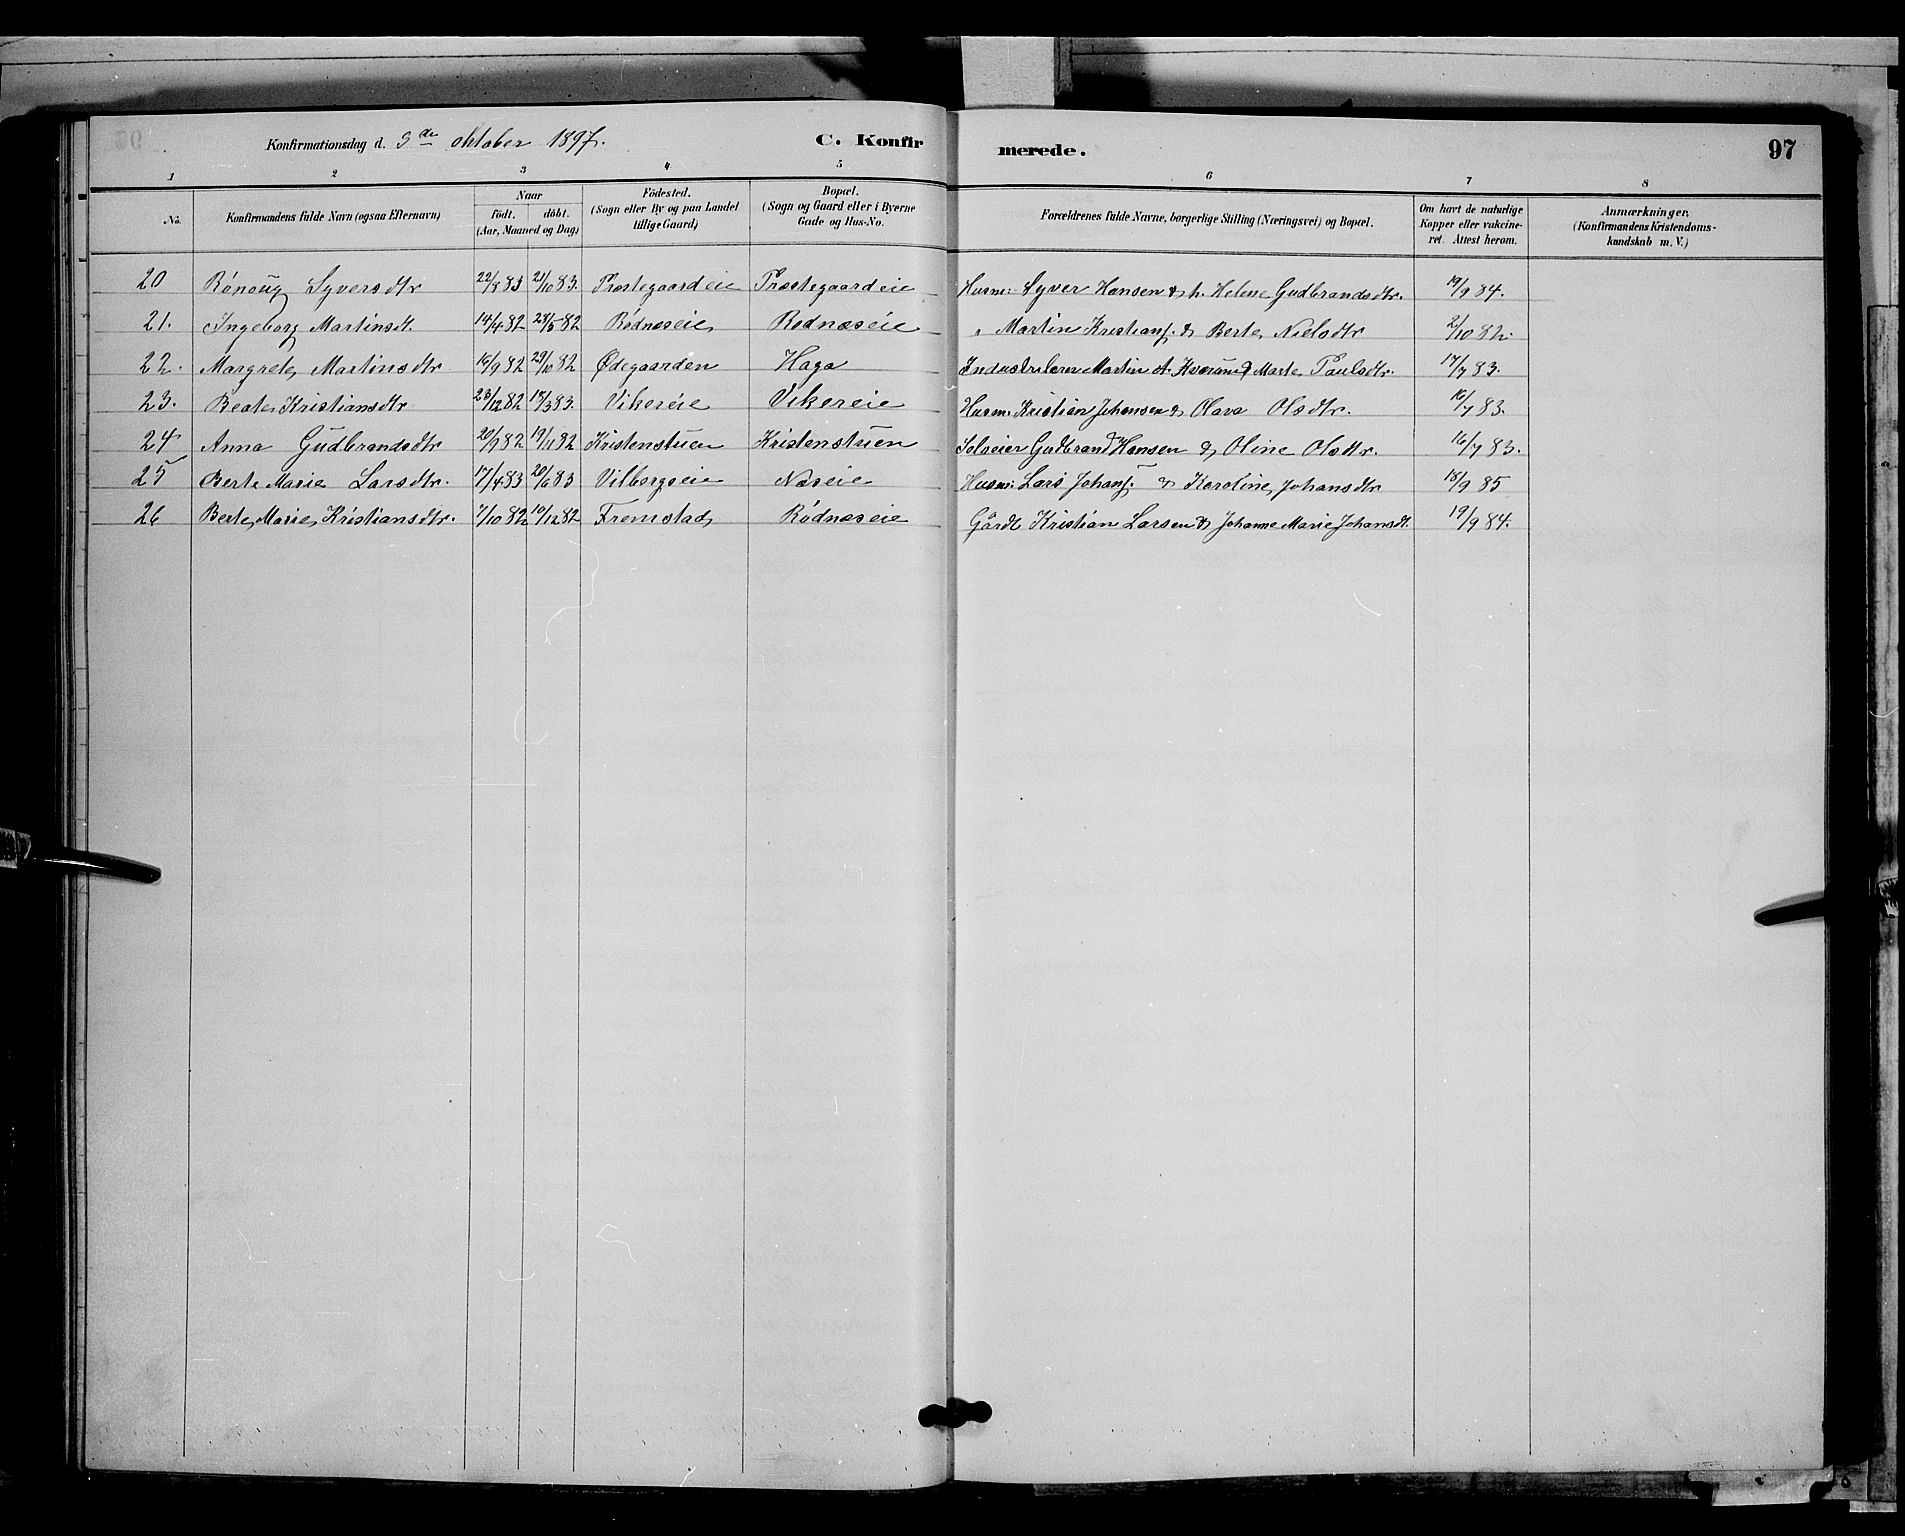 Konfirmationsdag d. 3de oktober 1897.
C. Konfirmerede.
97
1 2 3 4 5 6 7 8
No.
Konfirmandens fulde Navn (ogsaa Efternavn)
Naar
födt. döbt.
(Aar, Maaned og Dag)
Födested.
(Sogn eller By og paa Landet
tillige Gaard)
Bopæl.
(Sogn og Gaard eller i Byerne
Gade og Hus-No.
Forældrenes fulde Navne, borgerlige Stilling (Næringsvei) og Bopæl.
Om havt de naturlige
Kopper eller vakcine-
ret. Attest herom.
Anmærkninger.
(Konfirmandens Kristendoms-
kundskab m. V.)
20 Rönoug Syversdtr 22/8 83 21/10 83. Præstegaardeie Præstegaardeie Husm: Syver Hansen & h. Helene Gudbrandsdtr. 19/9 84.
21. Ingeborg Martinsdt. 14/4 82 28/5 82 Rödnæseie Rödnæseie " Martin Kristians. & Berte Nielsdtr 2/10 82.
22. Margrete Martinsdtr 16/9 82 29/10 82 Ødegaarden Haga Industrilærer Martin A. & Marte Paulsdtr. 17/7 83.
23. Beate Kristiansdtr 23/12 82 18/3 83. Vikereie Vikereie Husm. Kristian Johansen & Olava Olsdtr. 16/7 83.
24 Anna Gudbrandsdtr 20/9 82 19/11 82 Kristenstuen Kristenstuen Selveier Gudbrand Hansen & Oline Olsdtr. 16/7 83.
25 Berte Marie Larsdtr. 17/4 83 20/6 83 Vilborgseie Næseie Husm: Lars Johans. & Karoline Johansdtr 18/9 85
26 Berte Marie Kristiansdtr. 7/10 82 10/12 82 Fremstad Rödnæseie Gårdb Kristian Larsen & Johanne Marie Johansdt. 19/9 84.